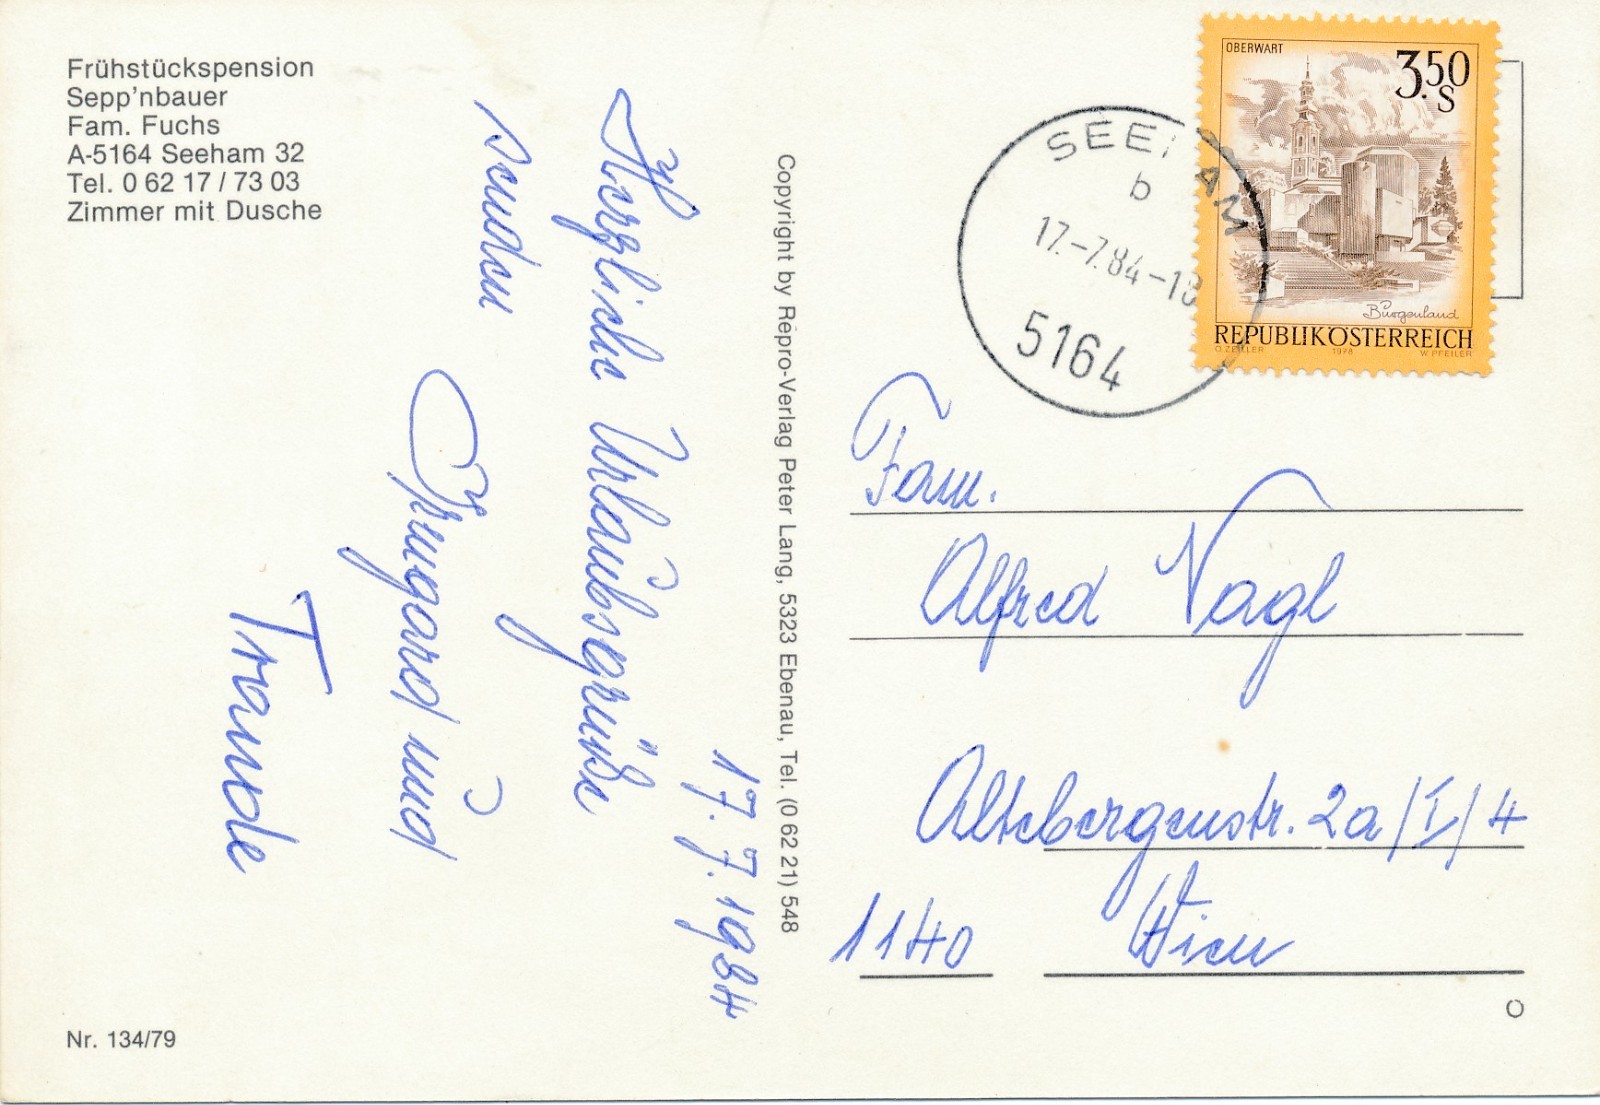 Frühstückspension
Sepp'nbauer
Fam. Fuchs
A-5164 Seeham 32
Tel. 0 62 17 / 73 03
Zimmer mit Dusche
17.7.1984
Herzliche Urlaubsgrüße
senden
Irmgard und
Traude
Nr. 134/79
Copyright by Repro-Verlag Peter Lang, 5323 Ebenau, Tel. (0 62 21) 548
SEEHAM
b
17.-7.84-18
5164
OBERWART
3.50
S
Burgenland
REPUBLIK ÖSTERREICH
O. ZEILLER 1978 W. PFEILER
Fam.
Alfred Vagl
Altebergenstr. 2a/I/4
1140 Wien